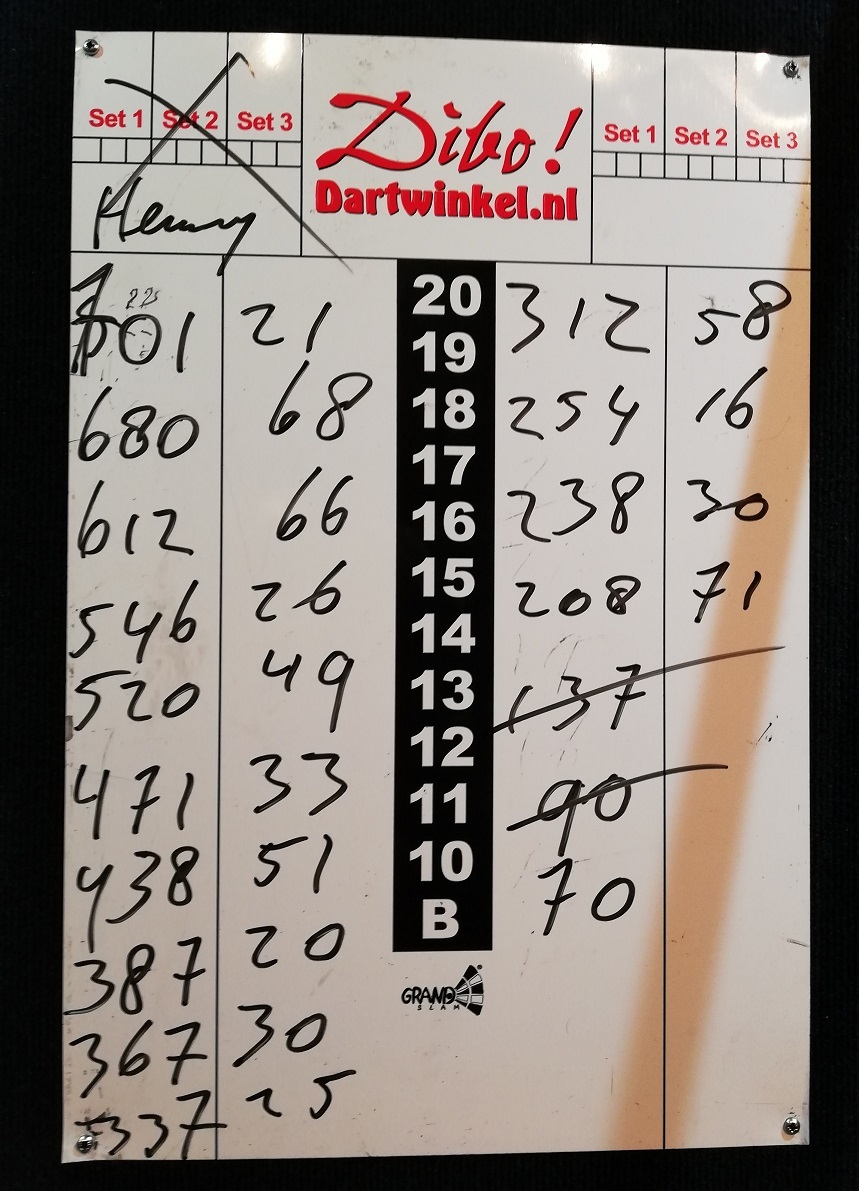 Set 1 Set 2 Set 3
Dibo!
Dartwinkel.nl
Set 1 Set 2 Set 3
Henny
701 21
680 68
612 66
546 26
520 49
471 33
438 51
387 20
367 30
337 25
20
19
18
17
16
15
14
13
12
11
10
B
GRAND SLAM
312 58
254 16
238 30
208 71
137
90
70